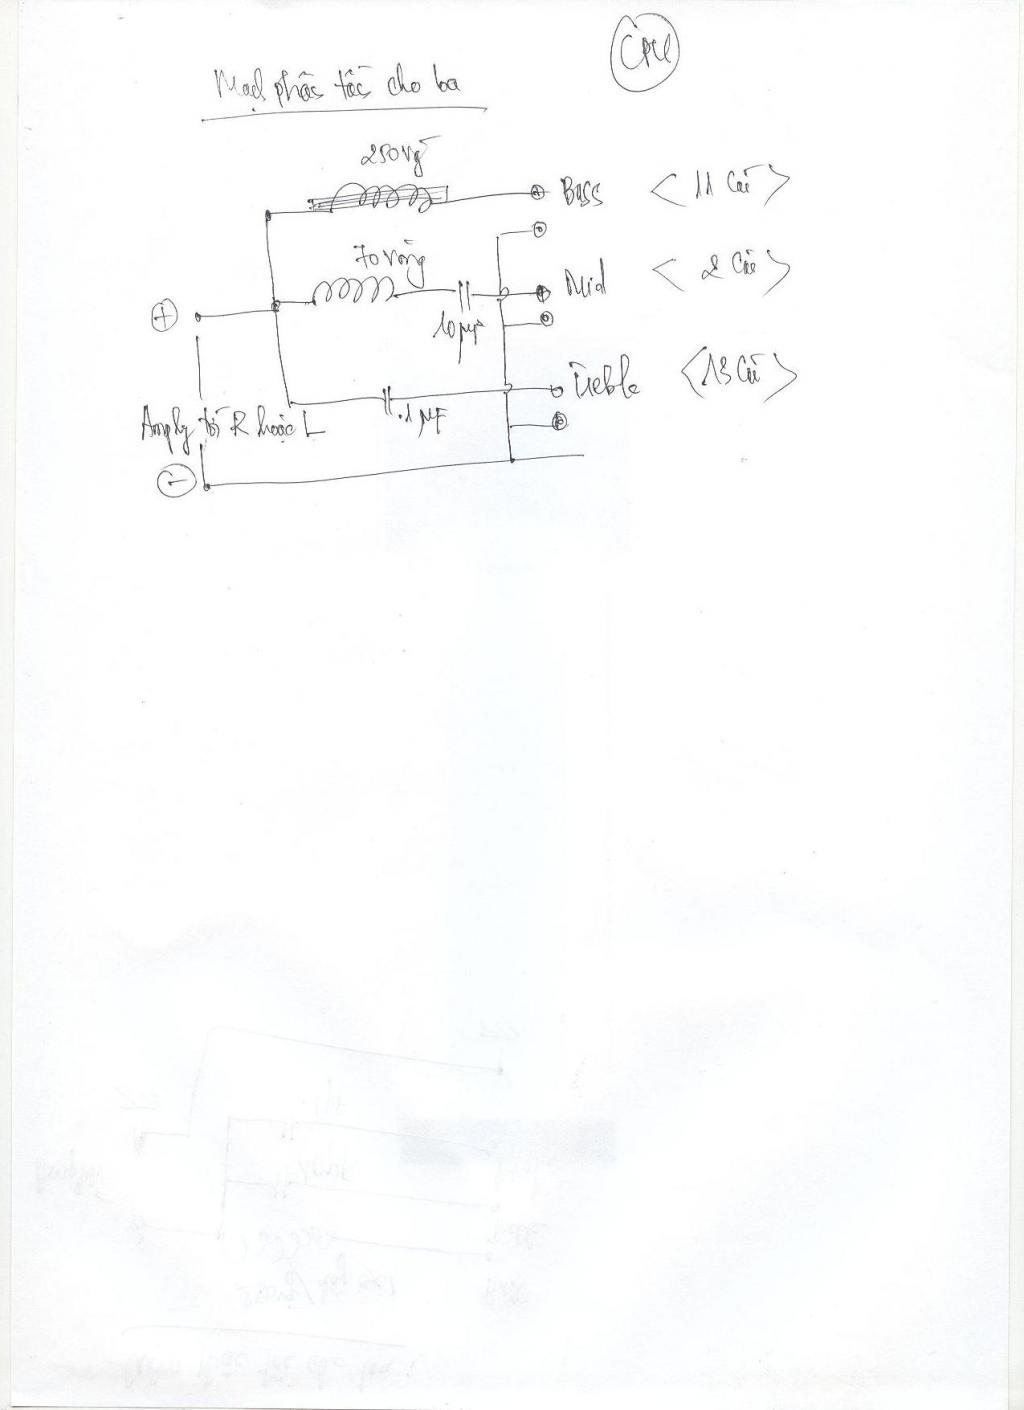 CPU
Mạch phân tần cho ba
250 vg
Bass <11 Cái>
70 vòng
Mid <2 Cái>
+
10 µF
Treble <13 Cái>
.1 µF
Amply tới R hoặc L
-